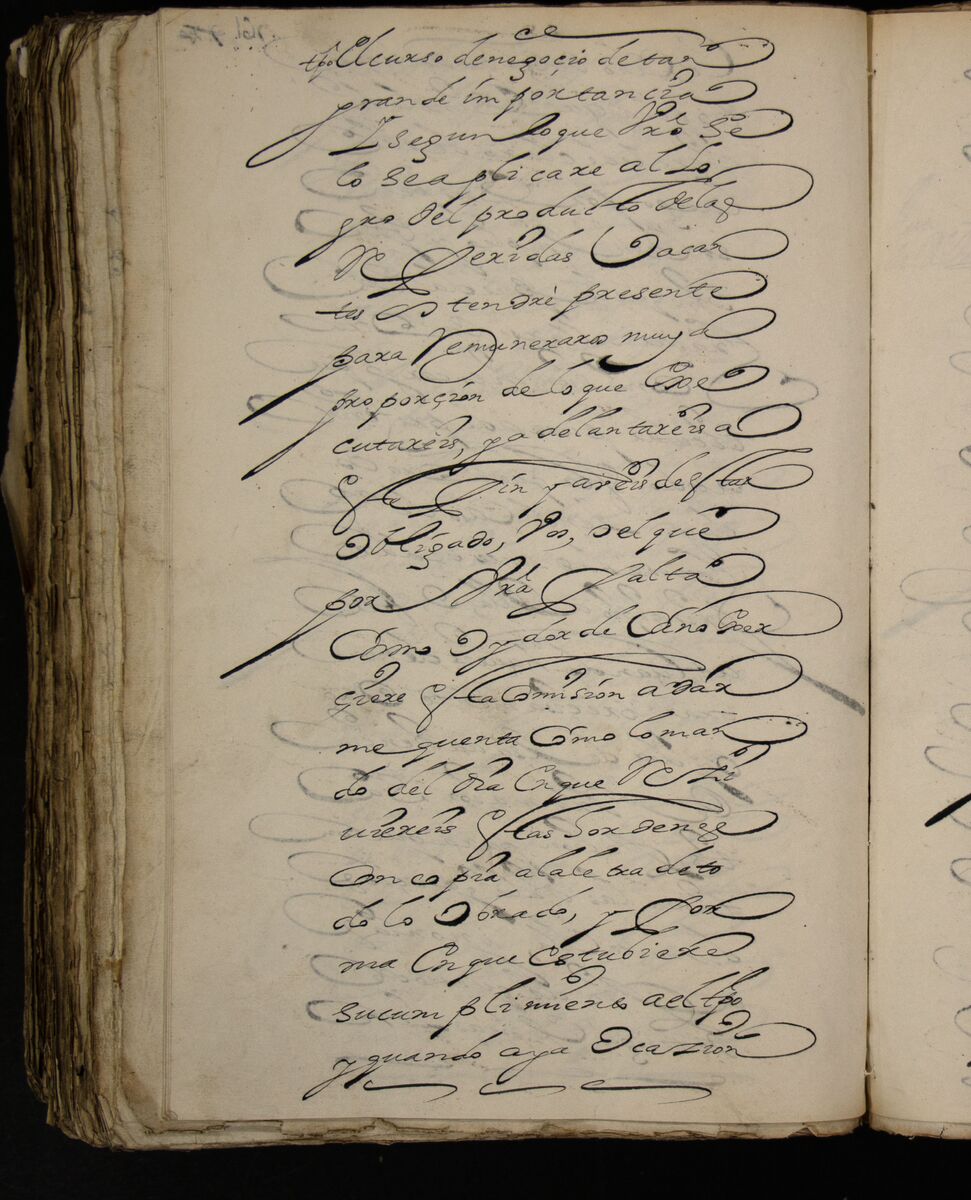 tpo El curso de negocio de tan
grande importancia
I segun lo que Vro Se
lo Se aplicare al Lo
gro del producto de las
Referidas Vacan
tes tendrè presente
para Remuneraros muy a
proporçion de lo que Exe
cutareis, y adelantareis a
este fin y areis de estar
obligado, Vos, o el que
por Vra falta
Como Oydor de Cano Exer
çiere esta Comision a dar
me quenta Como lo man
do del dia En que Re ziu
uiereis estas hordenes
Con copia a la letra de to
do lo Obrado, y for
ma En que Estubiere
su cumplimiento a el tpo
y quando aya Ocazion